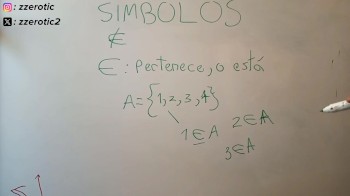 : zzerotic
: zzerotic2
SIMBOLOS
∉
∈: Pertenece, o está
A={1,2,3,4}
1∈A 2∈A
3∈A